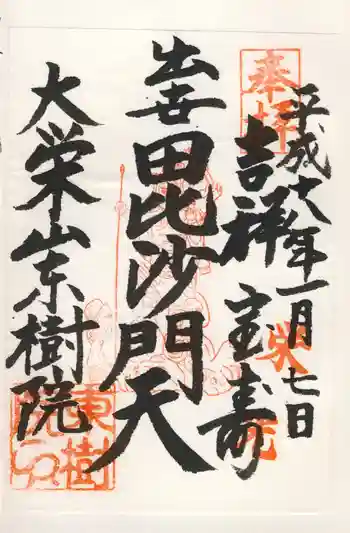 奉拝
平成十八年一月七日
吉祥 宝寿
出世毘沙門天
大栄山東樹院
東樹
院